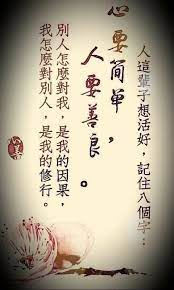 人這輩子想活好，記住八個字：
心要简单，
人要善良。
別人怎麼對我，是我的因果，
我怎麼對別人，是我的修行。